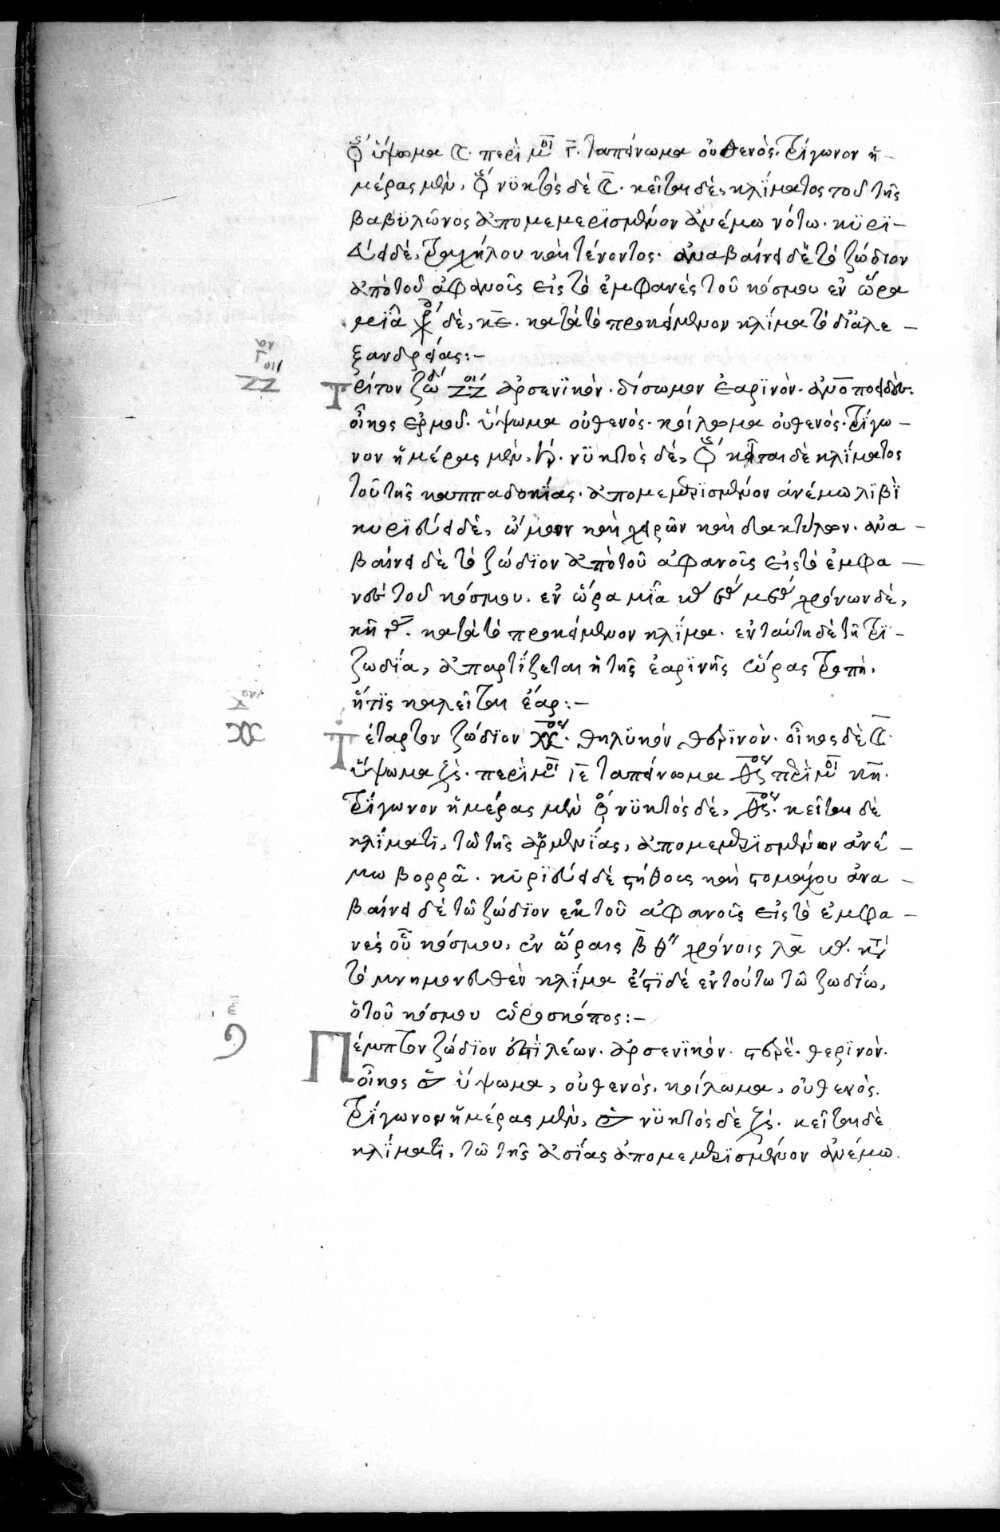 ♀ ὕψωμα ☾. περὶ μοῖ γ. ταπείνωμα οὐθενός. τρίγωνον ἡ-
μέρας μὲν, ♀ νϋκτὸς δὲ ☾. κεῖται δὲ, κλίματος τοῦ τῆς
βαβϋλῶνος ἀπομεμερϊσμένον ἀνέμω νότω. κϋρϊ-
εύει δὲ, τραχήλου καὶ τένοντος. ἀναβαίνει δὲ τὸ ζώδιον
ἀπὸ τοῦ ἀφανοῦς εἰς τὸ ἐμφανὲς τοῦ κόσμου ἐν ὥρα
μιᾶ δὲ, κε. κατὰ τὸ προκείμενον κλίμα τὸ δι᾽ ἀλε-
ξανδρείας:-
Τρίτον ζώδ ♊ ἀρσενϊκὸν. δίσωμον ἐαρϊνὸν.
οἶκος ἑρμοῦ. ὕψωμα οὐθενός. κοίλωμα οὐθενός. τρίγω-
νον ἡμέρας μὲν, ♄. νϋκτὸς δὲ, ☿ κεῖται δὲ κλίματος
τοῦ τῆς καππαδοκίας. ἀπομεμερϊσμένον ἀνέμω λιβὶ
κυρϊεύει δὲ, ὤμων καὶ χειρῶν καὶ δακτύλων. ἀνα-
βαίνει δὲ τὸ ζώδϊον ἀπὸ τοῦ ἀφανοῦς εἰς τὸ ἐμφα-
νὲς τοῦ κόσμου. ἐν ὥρα μϊᾶ χρόνων δὲ,
κη γ. κατὰ τὸ προκείμενον κλίμα. ἐν ταύτη δὲ τῆ
ζωδία, ἀπαρτίζεται ἡ τῆς ἐαρινῆς ὥρας τροπὴ,
ἥτϊς καλεῖται ἔαρ:-
Τέταρτον ζώδϊον ♋. θηλϋκόν, θερϊνὸν. οἶκος δὲ ☾.
ὕψωμα ζεὺς. περὶ μοῖ ιε ταπείνωμα περὶ μοῖ κη.
τρίγωνον ἡμέρας μὲν ♀ νϋκτὸς δὲ, κεῖται δὲ
κλίματϊ, τῶ τῆς ἀρμενίας, ἀπομεμερϊσμένον ἀνέ-
μω βορρᾶ. κϋρϊεύει δὲ στήθους καὶ στομάχου ἀνα-
βαίνει δὲ τῶ ζώδϊον ἐκ τοῦ ἀφανοῦς εἰς τὸ ἐμφα-
νὲς οὗ κόσμου, ἐν ὥραις β θ´´ χρόνοις λα κθ. κατ
τὸ μνημονευθὲν κλίμα ἐπϊ δὲ ἐν τούτω τῶ ζωδίω,
ὁ τοῦ κόσμου ὡροσκόπος:-
Πέμπτον ζώδϊον ἐστϊ λέων. ἀρσενϊκόν. στερε. θερϊνὸν.
οἶκος ☉ ὕψωμα, οὐθενός. κοίλωμα, οὐθενός.
τρίγωνον ἡμέρας μὲν, ☉ νϋκτὸς δὲ ζεὺς. κεῖται δὲ
κλίματϊ, τῶ τῆς ἀσίας ἀπομεμερϊσμένον ἀνέμω.